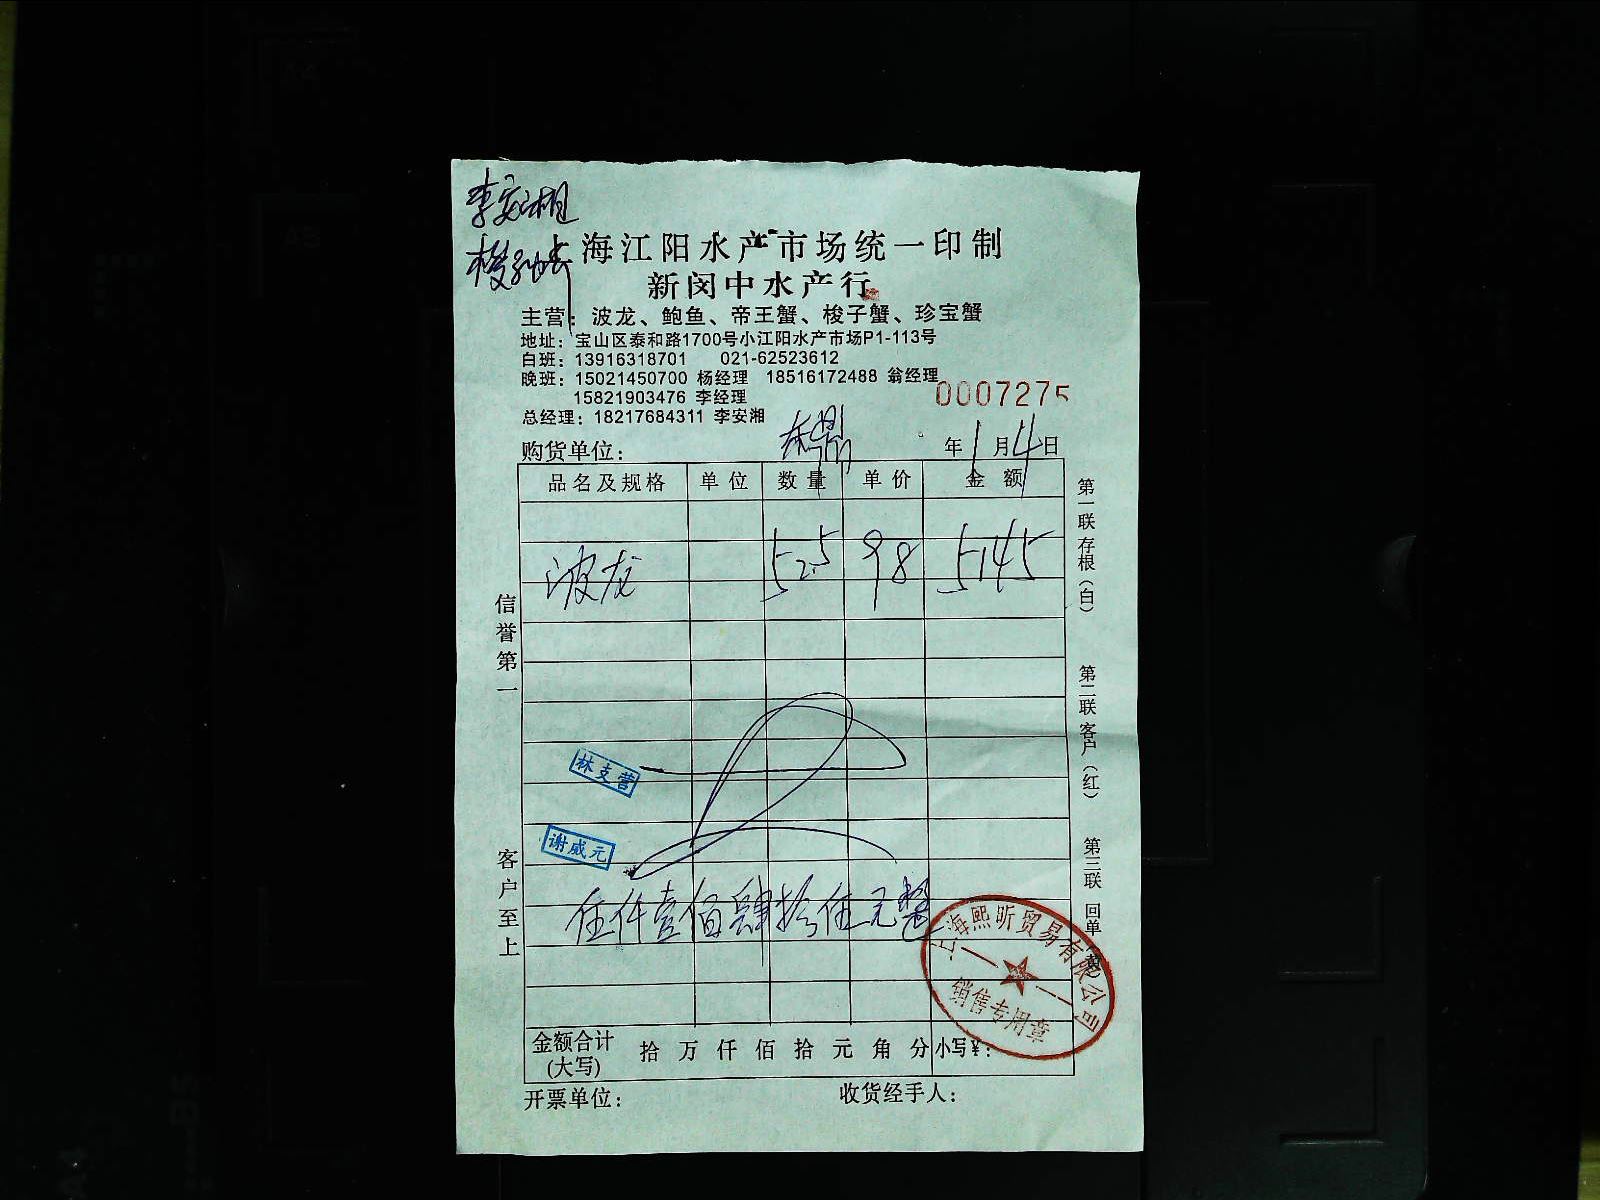 李安湘
梭子蟹
上海江阳水产市场统一印制
新闵中水产行
主营：波龙、鲍鱼、帝王蟹、梭子蟹、珍宝蟹
地址：宝山区泰和路1700号小江阳水产市场P1-113号
白班：13916318701 021-62523612
晚班：15021450700 杨经理 18516172488 翁经理
15821903476 李经理
0007275
总经理：18217684311 李安湘
购货单位： 年1月4日
品名及规格 单位 数量 单价 金额
波龙 52.5 98 5145
第一联存根（白）
第二联客户（红）
第三联回单（黄）
信誉第一
客户至上
林支营
谢威元
伍仟壹佰肆拾伍元整
上海熙昕贸易有限公司
销售专用章
金额合计(大写) 拾万仟佰拾元角分 小写¥：
开票单位： 收货经手人：